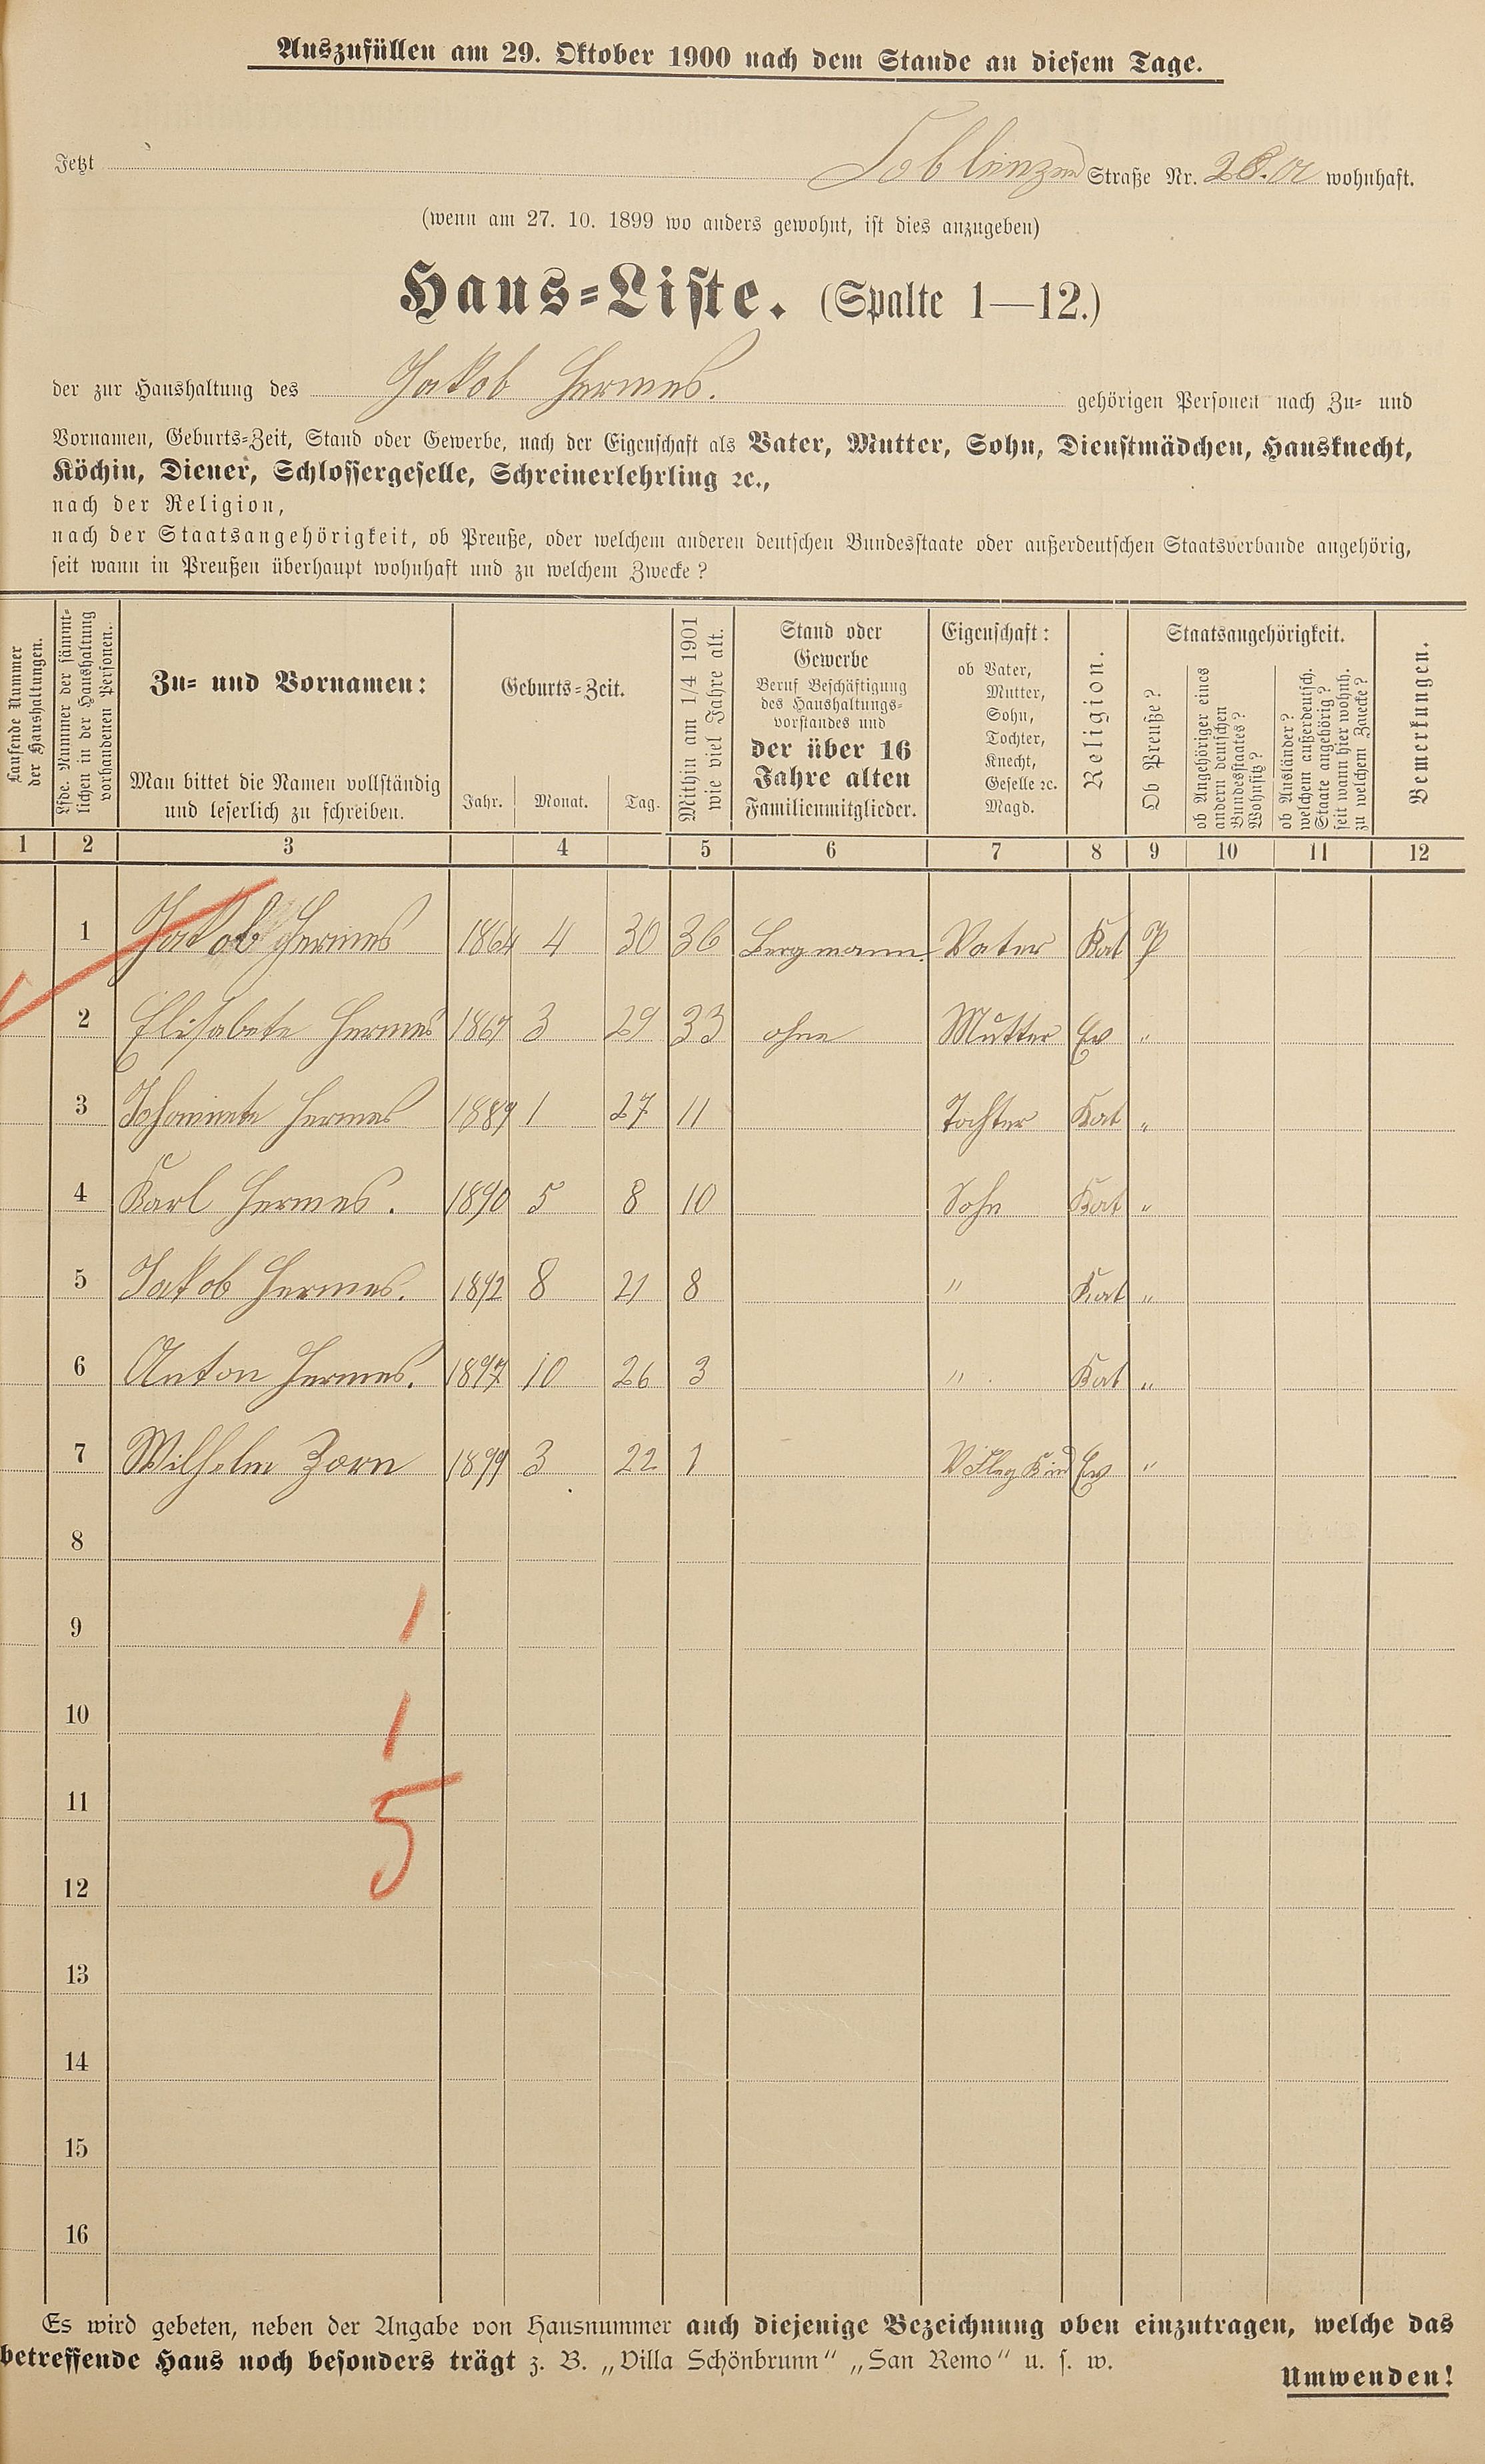 Auszufüllen am 29. Oktober 1900 nach dem Stande an diesem Tage.
Jetzt Coblenzer Straße Nr. 28. a wohnhaft.
(wenn am 27. 10. 1899 wo anders gewohnt, ist dies anzugeben)
Haus-Liste. (Spalte 1—12.)
der zur Haushaltung des Jakob Hermes. gehörigen Personen nach Zu- und
Vornamen, Geburts-Zeit, Stand oder Gewerbe, nach der Eigenschaft als Vater, Mutter, Sohn, Dienstmädchen, Hausknecht,
Köchin, Diener, Schlossergeselle, Schreinerlehrling ꝛc.,
nach der Religion,
nach der Staatsangehörigkeit, ob Preuße, oder welchem anderen deutschen Bundesstaate oder außerdeutschen Staatsverbande angehörig,
seit wann in Preußen überhaupt wohnhaft und zu welchem Zwecke?
Laufende Nummer
der Haushaltungen.
Lfde. Nummer der sämmt-
lichen in der Haushaltung
vorhandenen Personen.
Zu- und Vornamen:
Man bittet die Namen vollständig
und leserlich zu schreiben.
Geburts-Zeit.
Jahr. Monat. Tag.
Mithin am 1/4 1901
wie viel Jahre alt.
Stand oder
Gewerbe
Beruf Beschäftigung
des Haushaltungs-
vorstandes und
der über 16
Jahre alten
Familienmitglieder.
Eigenschaft:
ob Vater,
Mutter,
Sohn,
Tochter,
Knecht,
Geselle ꝛc.
Magd.
Religion.
Staatsangehörigkeit.
Ob Preuße?
ob Angehöriger eines
andern deutschen
Bundesstaates?
Wohnsitz?
ob Ausländer?
welchem außerdeutsch.
Staate angehörig?
seit wann hier wohnh.
zu welchem Zwecke?
Bemerkungen.
1 2 3 4 5 6 7 8 9 10 11 12
1 Jakob Hermes 1864 4 30 36 Bergmann. Vater Kat P
2 Elisabete Hermes 1867 3 29 33 ohne Mutter Ev "
3 Hermes 1889 1 27 11 Tochter Kat "
4 Karl Hermes. 1890 5 8 10 Sohn Kat "
5 Jakob Hermes. 1892 8 21 8 " Kat "
6 Anton Hermes. 1897 10 26 3 " Kat "
7 Wilhelm Zorn 1899 3 22 1 Ev "
8
9 1
10 1
11 5
12
13
14
15
16
Es wird gebeten, neben der Angabe von Hausnummer auch diejenige Bezeichnung oben einzutragen, welche das
betreffende Haus noch besonders trägt z. B. „Villa Schönbrunn“ „San Remo“ u. s. w.
Umwenden!